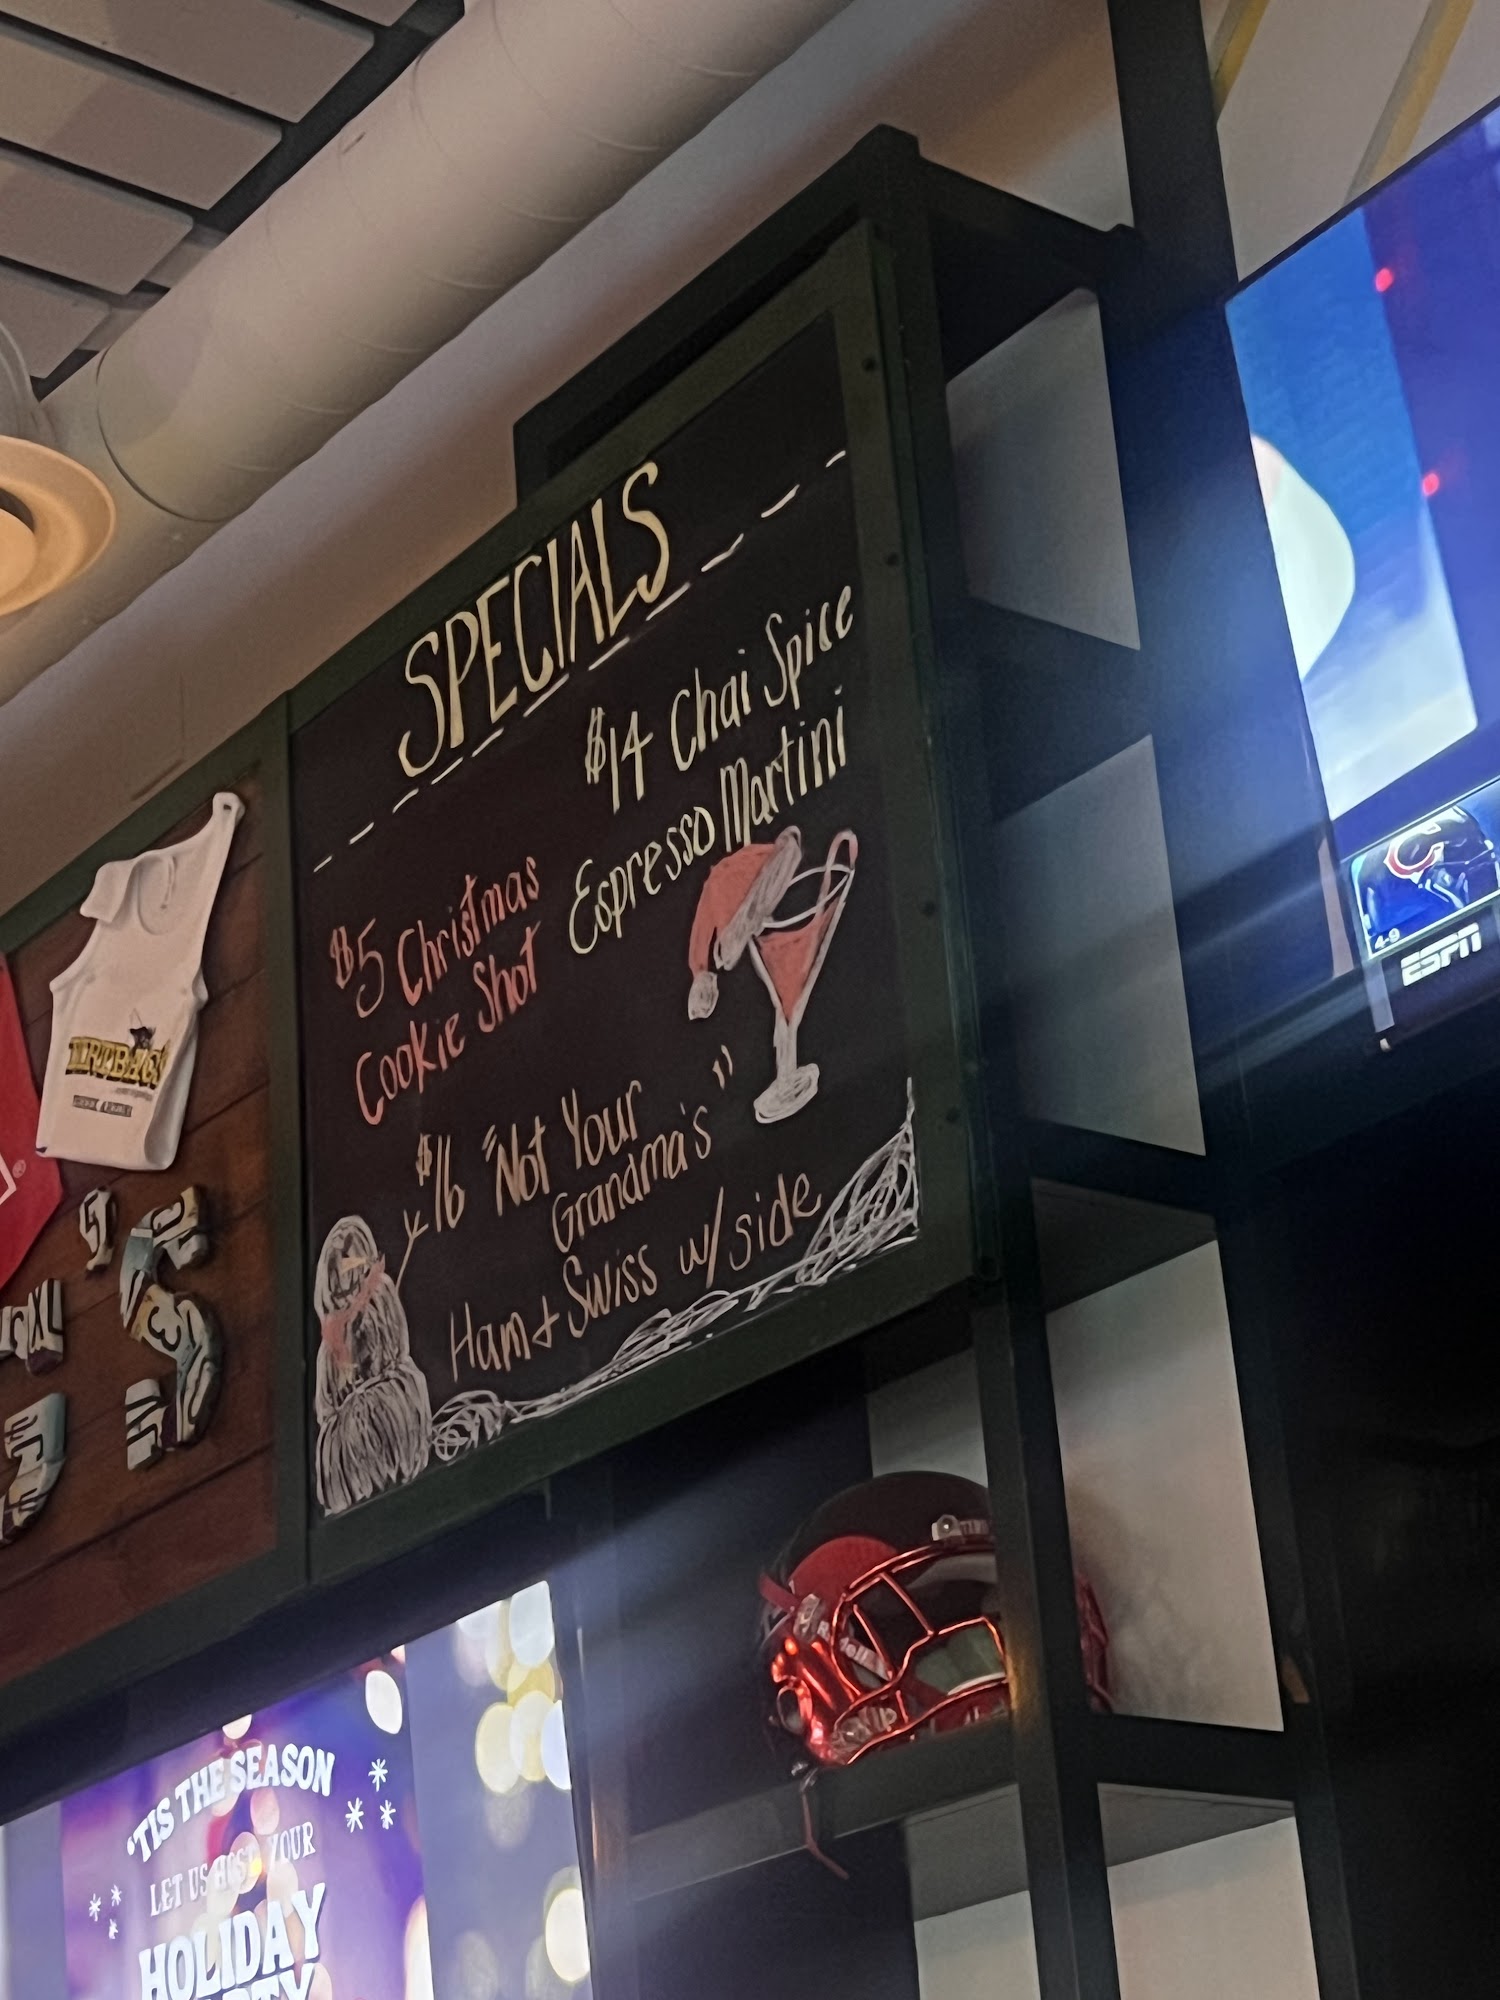 SPECIALS
$14 Chai Spice
Espresso Martini
$5 Christmas
Cookie Shot
$16 "Not Your
Grandma's"
Ham + Swiss w/ side
DIRTBAGS
4-9
ESPN
Riddell
'TIS THE SEASON
LET US HOST YOUR
HOLIDAY
PARTY